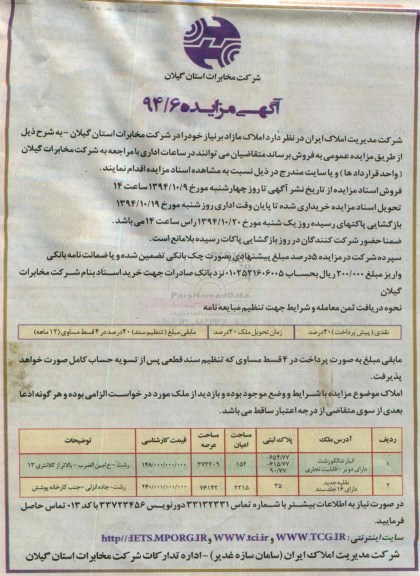 شرکت مخابرات استان گیلان
آگهی مزایده ۹۴/۶
شرکت مدیریت املاک ایران در نظر دارد املاک مازاد بر نیاز خود را در شرکت مخابرات استان گیلان - به شرح ذیل
از طریق مزایده عمومی به فروش برساند متقاضیان می توانند در ساعات اداری با مراجعه به شرکت مخابرات گیلان
(واحد قراردادها) و یا سایت مندرج در ذیل نسبت به مشاهده اسناد مزایده اقدام نمایند.
فروش اسناد مزایده از تاریخ نشر آگهی تا روز چهارشنبه مورخ ۱۳۹۴/۱۰/۹ ساعت ۱۴
تحویل اسناد مزایده خریداری شده تا پایان وقت اداری روز شنبه مورخ ۱۳۹۴/۱۰/۱۹
بازگشایی پاکتهای رسیده روز یک شنبه مورخ ۱۳۹۴/۱۰/۲۰ راس ساعت ۱۴ می باشد.
ضمنا حضور شرکت کنندگان در روز بازگشایی پاکات رسیده بلامانع است.
سپرده شرکت در مزایده ۵درصد مبلغ پیشنهادی بصورت چک بانکی تضمین شده و یا ضمانت نامه بانکی
واریز مبلغ ۲۰۰/۰۰۰ ریال بحساب ۰۱۰۲۵۳۱۶۰۶۰۰۵ نزد بانک صادرات جهت خرید اسناد بنام شرکت مخابرات
گیلان
نحوه دریافت ثمن معامله و شرایط جهت تنظیم مبایعه نامه
نقدی (پیش پرداخت) ۴۰درصد زمان تحویل ملک ۲۰درصد مابقی مبلغ (تنظیم سند) ۴۰درصد در ۴ قسط مساوی (۱۲ ماهه)
مابقی مبلغ به صورت پرداخت در ۴ قسط مساوی که تنظیم سند قطعی پس از تسویه حساب کامل صورت خواهد
پذیرفت.
املاک موضوع مزایده با شرایط و وضع موجود بوده و بازدید از ملک مورد در خواست الزامی بوده و هر گونه ادعا
بعدی از سوی متقاضی از درجه اعتبار ساقط می باشد.
ردیف آدرس ملک پلاک ثبتی مساحت اعیان مساحت عرصه قیمت کارشناسی توضیحات
۱ انبار شالکو رشت دارای دو بر - قابلیت تجاری ۱۵۴ ۳۷۳۳۰۹ ۱۴۸/۰۰۰/۰۰۰/۰۰۰ رشت - خ امین الضرب - بالاتر از کلانتری ۱۳
۲ نقلیه جدید دارای ۱۴ جلد سند ۳۵ ۲۲۱۵ ۷۶۱۴۲ ۲۴۰/۰۰۰/۰۰۰/۰۰۰ رشت - جاده انزلی - جنب کارخانه پوشش
در صورت نیاز به اطلاعات بیشتر با شماره تماس ۳۳۱۳۲۳۳۱ دورنویس ۳۳۷۲۳۴۵۶ با کد ۰۱۳ تماس حاصل
فرمایید.
سایت اینترنتی: WWW.TCG.IR و WWW.tci.ir و http//:IETS.MPORG.IR
شرکت مدیریت املاک ایران (سامان سازه غدیر) - اداره تدارکات شرکت مخابرات استان گیلان
ParsNamadData